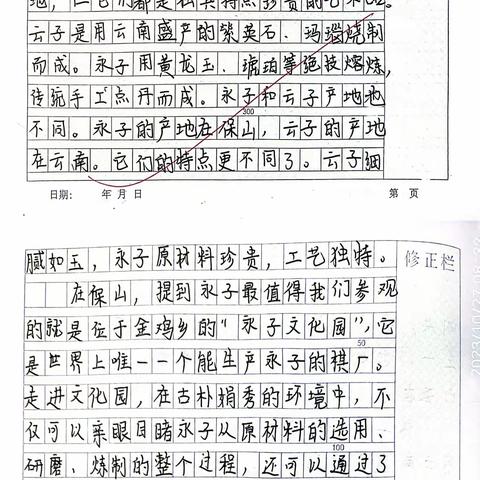 云子是用云南盛产的紫英石、玛瑙烧制
而成。永子用黄龙玉、琥珀等绝技熔炼，
传统手工点丹而成。永子和云子产地也
300
不同。永子的产地在保山，云子的产地
在云南。它们的特点更不同了。云子细
日期： 年 月 日 第 页
腻如玉，永子原材料珍贵，工艺独特。 修正栏
在保山，提到永子最值得我们参观
的就是位于金鸡乡的“永子文化园”，它
50
是世界上唯一一个能生产永子的棋厂。
走进文化园，在古朴娟秀的环境中，不
仅可以亲眼目睹永子从原材料的选用、
100
研磨、炼制的整个过程，还可以通过了